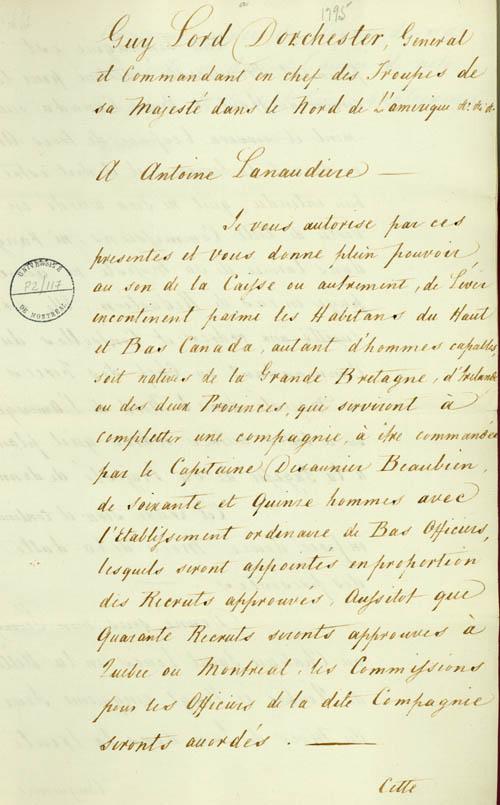 1795
Guy Lord Dorchester, General
et Commandant en chef des Troupes de
sa Majesté dans le Nord de L'amerique &c. &c. &c.
A Antoine Lanaudiere —
Je vous autorise par ces
presentes et vous donne plein pouvoir
au son de la Caisse ou autrement, de Léver
incontinent paimi les Habitans du Haut
et Bas Canada, autant d'hommes capables
soit natives de la Grande Bretagne, d'Irelande
ou des deux Provinces, qui serviront à
completter une compagnie, à être commandée
par le Capitaine Desaunier Beaubien,
de soixante et Quinze hommes avec
l'Etablissement ordinaire de Bas Officiers,
lesquels seront appointés en proportion
des Recruts approuvés, Aussitot que
Quarante Recruts seronts approuvés à
Quibec ou Montreal, les Commissions
pour les Officiers de la dite Compagnie
seronts accordés. —
Cette
UNIVERSITÉ
P2/117
DE MONTRÉAL